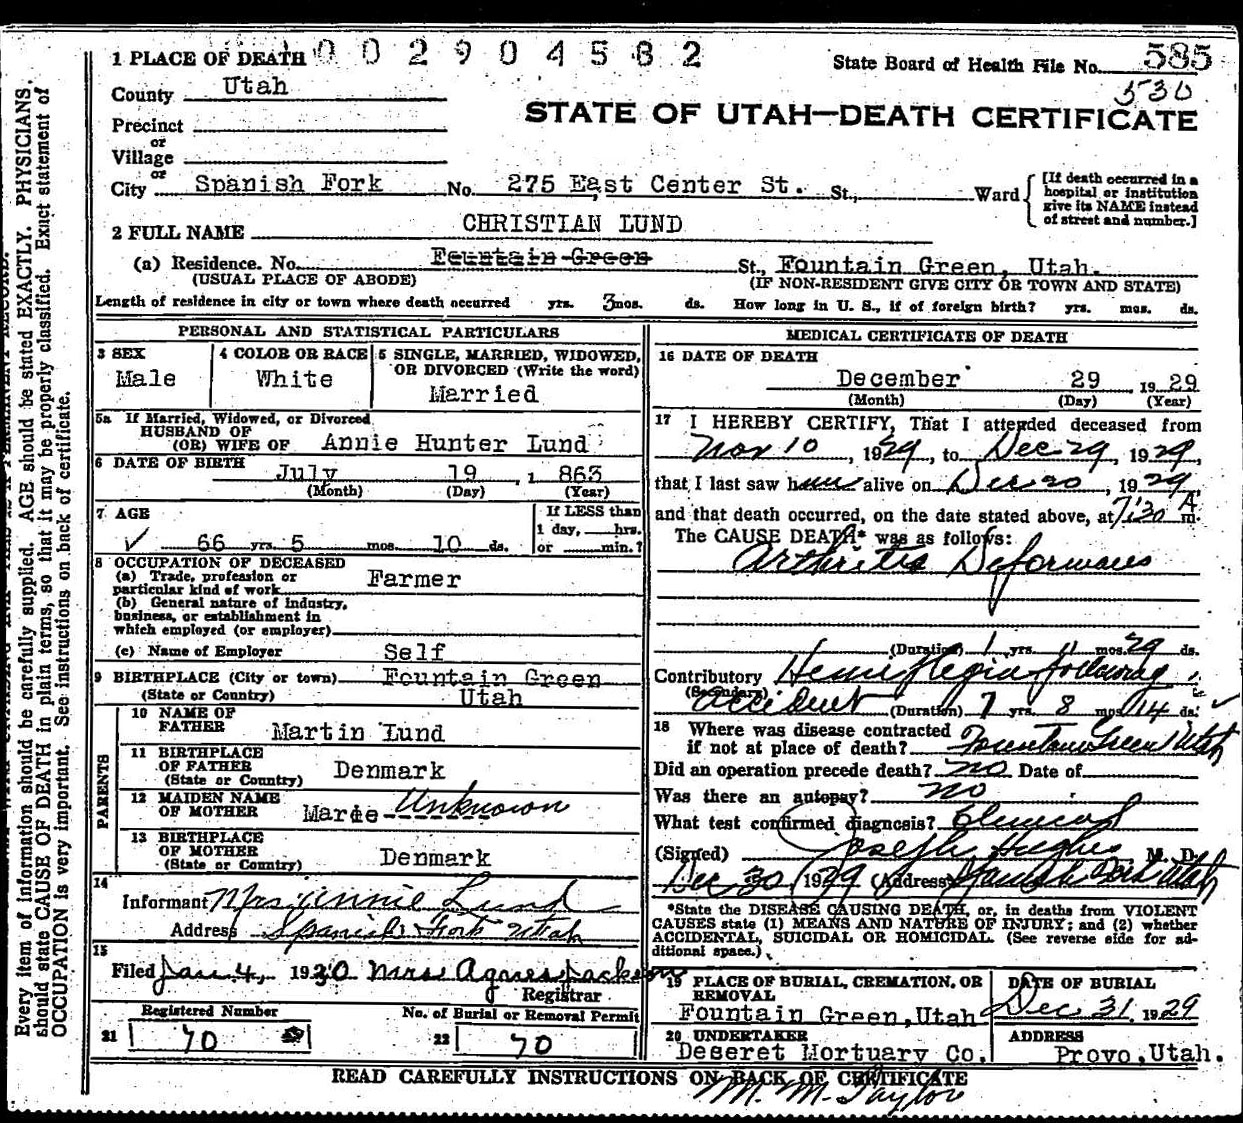 002904582
1 PLACE OF DEATH
State Board of Health File No. 585
530
County Utah
STATE OF UTAH—DEATH CERTIFICATE
Precinct
or
Village
or
City Spanish Fork No. 275 East Center St. St., Ward
[If death occurred in a hospital or institution give its NAME instead of street and number.]
2 FULL NAME CHRISTIAN LUND
(a) Residence. No. Fountain Green St., Fountain Green, Utah.
(USUAL PLACE OF ABODE) (IF NON-RESIDENT GIVE CITY OR TOWN AND STATE)
Length of residence in city or town where death occurred yrs. 3 mos. ds. How long in U. S., if of foreign birth? yrs. mos. ds.
PERSONAL AND STATISTICAL PARTICULARS
3 SEX
Male
4 COLOR OR RACE
White
5 SINGLE, MARRIED, WIDOWED,
OR DIVORCED (Write the word)
Married
5a If Married, Widowed, or Divorced
HUSBAND OF
(OR) WIFE OF Annie Hunter Lund
6 DATE OF BIRTH
July 19, 1863
(Month) (Day) (Year)
7 AGE
66 yrs. 5 mos. 10 ds.
If LESS than
1 day, hrs.
or min.?
8 OCCUPATION OF DECEASED
(a) Trade, profession or
particular kind of work Farmer
(b) General nature of industry,
business, or establishment in
which employed (or employer)
(c) Name of Employer Self
9 BIRTHPLACE (City or town) Fountain Green
(State or Country) Utah
PARENTS
10 NAME OF
FATHER Martin Lund
11 BIRTHPLACE
OF FATHER
(State or Country) Denmark
12 MAIDEN NAME
OF MOTHER Marie Unknown
13 BIRTHPLACE
OF MOTHER
(State or Country) Denmark
14
Informant Mrs Annie Lund
Address Spanish Fork Utah
15
Filed Jan 4, 1930 Mrs Agnes Jackson
Registrar
Registered Number No. of Burial or Removal Permit
21 70 22 70
MEDICAL CERTIFICATE OF DEATH
16 DATE OF DEATH
December 29, 1929
(Month) (Day) (Year)
17 I HEREBY CERTIFY, That I attended deceased from
Nov 10, 1929, to Dec 29, 1929,
that I last saw him alive on Dec 20, 1929,
and that death occurred, on the date stated above, at 7:30 A m.
The CAUSE DEATH* was as follows:
Arthritis Deformans
(Duration) 1 yrs. 11 mos. 29 ds.
Contributory Hemiplegia following
(Secondary) accident (Duration) 7 yrs. 8 mos. 14 ds.
18 Where was disease contracted
if not at place of death? Fountain Green Utah
Did an operation precede death? no Date of
Was there an autopsy? no
What test confirmed diagnosis? Clinical
(Signed) Joseph Hughes M. D.
Dec 30, 1929 (Address) Spanish Fork Utah
*State the DISEASE CAUSING DEATH, or, in deaths from VIOLENT
CAUSES state (1) MEANS AND NATURE OF INJURY; and (2) whether
ACCIDENTAL, SUICIDAL OR HOMICIDAL. (See reverse side for ad-
ditional space.)
19 PLACE OF BURIAL, CREMATION, OR
REMOVAL
Fountain Green, Utah
DATE OF BURIAL
Dec 31, 1929
20 UNDERTAKER
Deseret Mortuary Co.
ADDRESS
Provo, Utah.
READ CAREFULLY INSTRUCTIONS ON BACK OF CERTIFICATE
M. M. Taylor
Every item of information should be carefully supplied. AGE should be stated EXACTLY. PHYSICIANS.
should state CAUSE OF DEATH in plain terms, so that it may be properly classified. Exact statement of
OCCUPATION is very important. See instructions on back of certificate.